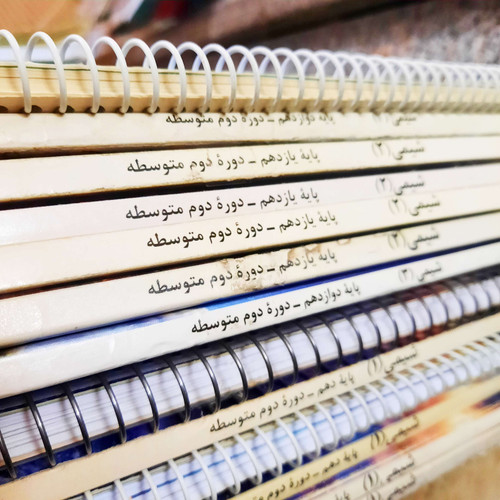 شیمی (۳) پایهٔ دوازدهم ـ دورهٔ دوم متوسطه
شیمی (۲) پایهٔ یازدهم ـ دورهٔ دوم متوسطه
شیمی (۲) پایهٔ یازدهم ـ دورهٔ دوم متوسطه
شیمی (۲) پایهٔ یازدهم ـ دورهٔ دوم متوسطه
شیمی (۲) پایهٔ یازدهم ـ دورهٔ دوم متوسطه
شیمی (۳) پایهٔ دوازدهم ـ دورهٔ دوم متوسطه
شیمی (۱) پایهٔ دهم ـ دورهٔ دوم متوسطه
شیمی (۱) پایهٔ دهم ـ دورهٔ دوم متوسطه
شیمی (۱)
شیمی